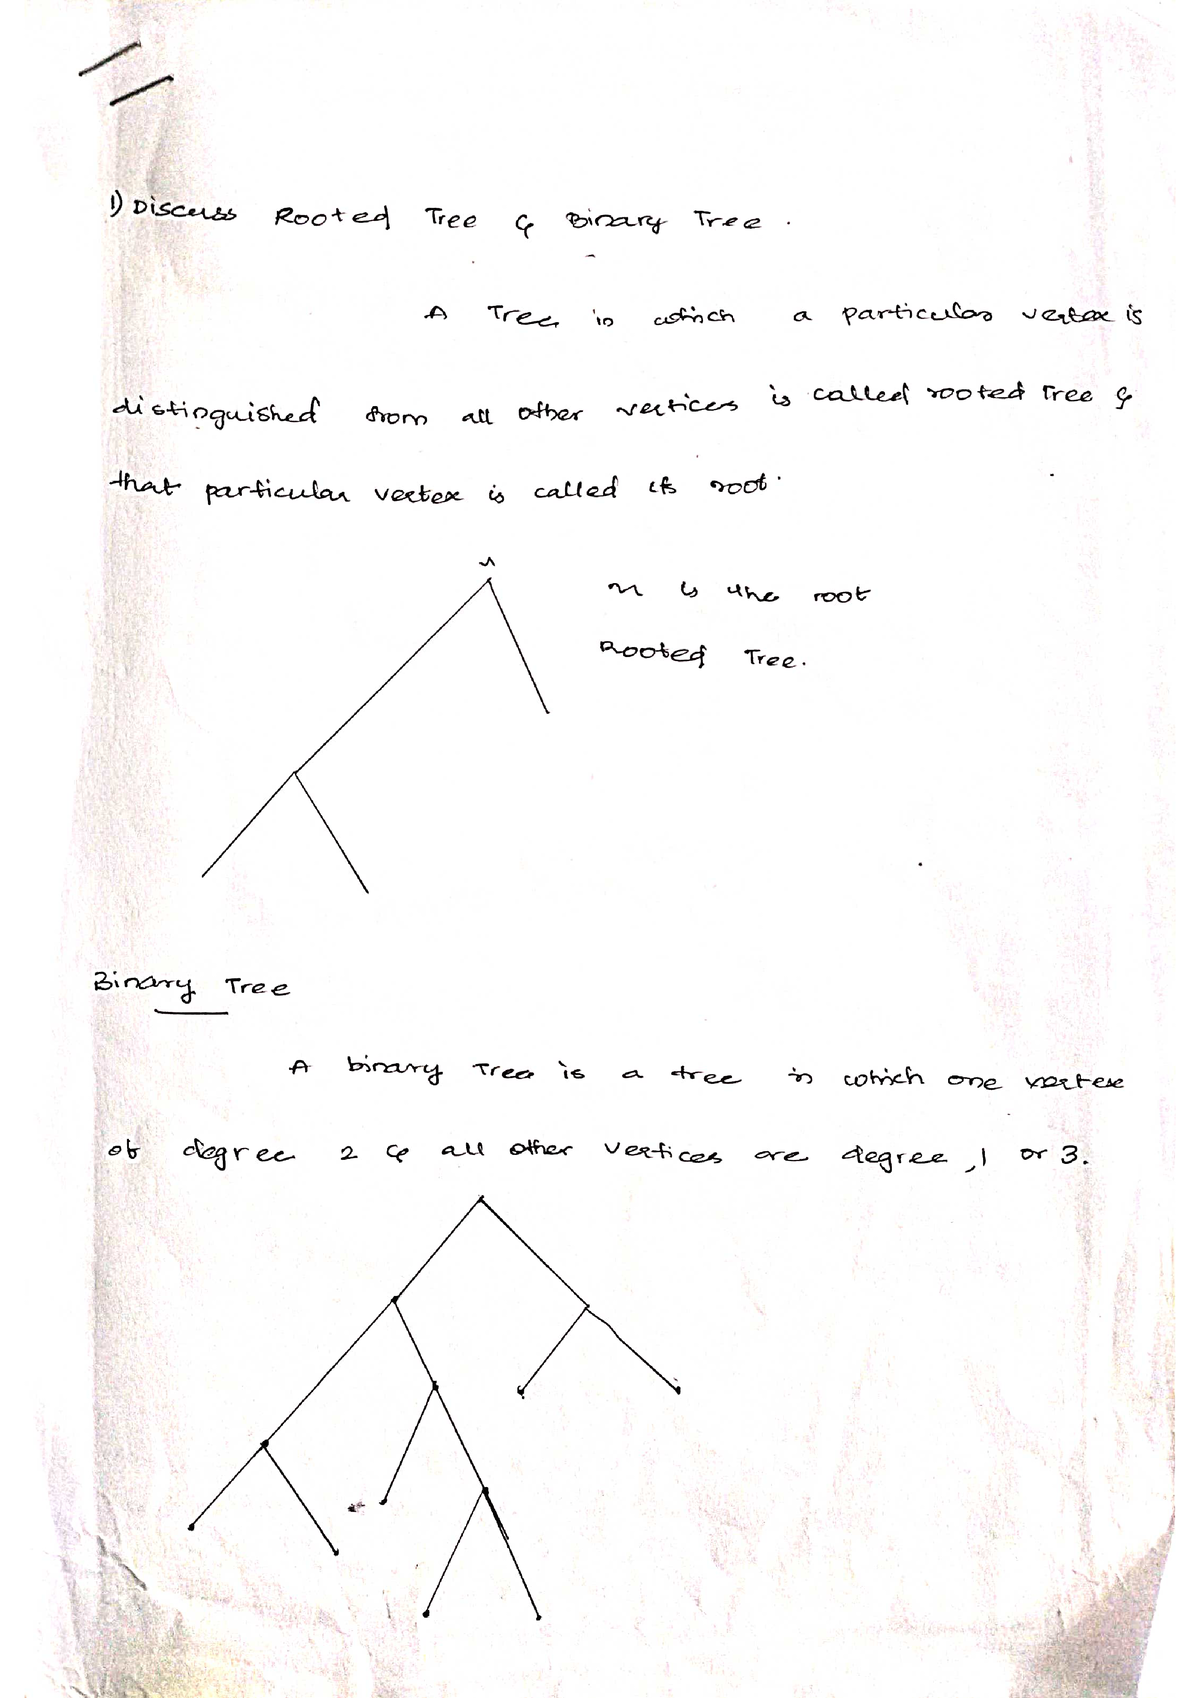 1) Discuss Rooted Tree & Binary Tree .
A Tree in which a particular vertex is
distinguished from all other vertices is called rooted Tree &
that particular vertex is called its root.
n is the root
Rooted Tree.
Binary Tree
A binary Tree is a tree in which one vertex
of degree 2 & all other vertices are degree , 1 or 3.